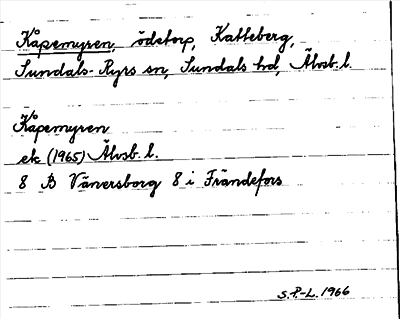 Kåpemyren, ödetorp, Katteberg,
Sundals-Ryrs sn, Sundals hd, Älvsb. l.
Kåpemyren
ek (1965) Älvsb. l.
8 B Vänersborg 8 i Frändefors
S.P.-L. 1966